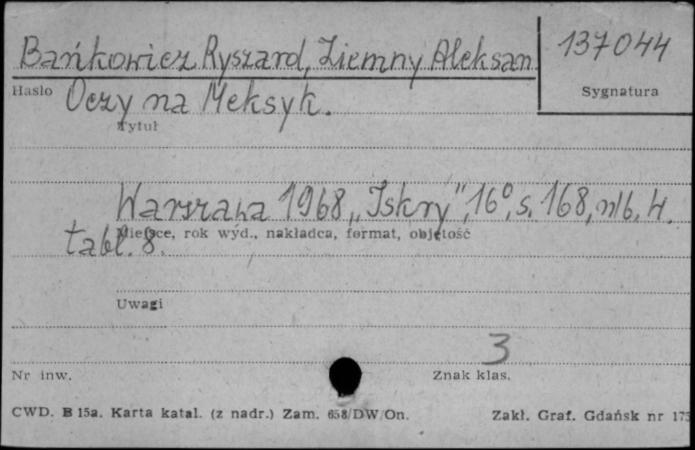 Bańkowicz Ryszard, Ziemny Aleksan
137044
Hasło
Sygnatura
Oczy na Meksyk.
Tytuł
Warszawa 1968 „Iskry”, 16°, s. 168, nlb. 4.
Miejsce, rok wyd., nakładca, format, objętość
tabl. 8.
Uwagi
3
Nr inw.
Znak klas.
CWD. B 15a. Karta katal. (z nadr.) Zam. 658/DW/On.
Zakł. Graf. Gdańsk nr 175